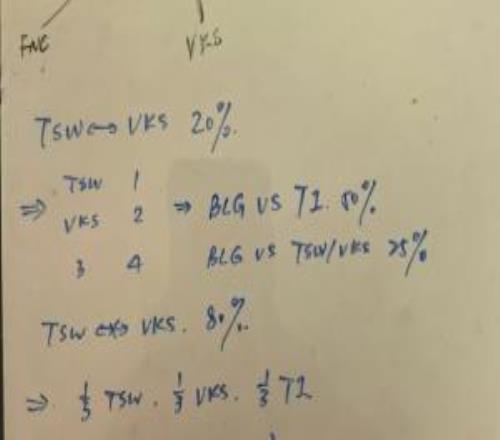 FNC
VKS
TSW ↔ VKS 20%.
TSW 1
⇒ VKS 2 ⇒ BLG VS T1. 50%
3 4 BLG VS TSW/VKS 25%
TSW ↮ VKS. 80%.
⇒ 1/3 TSW. 1/3 VKS. 1/3 T1